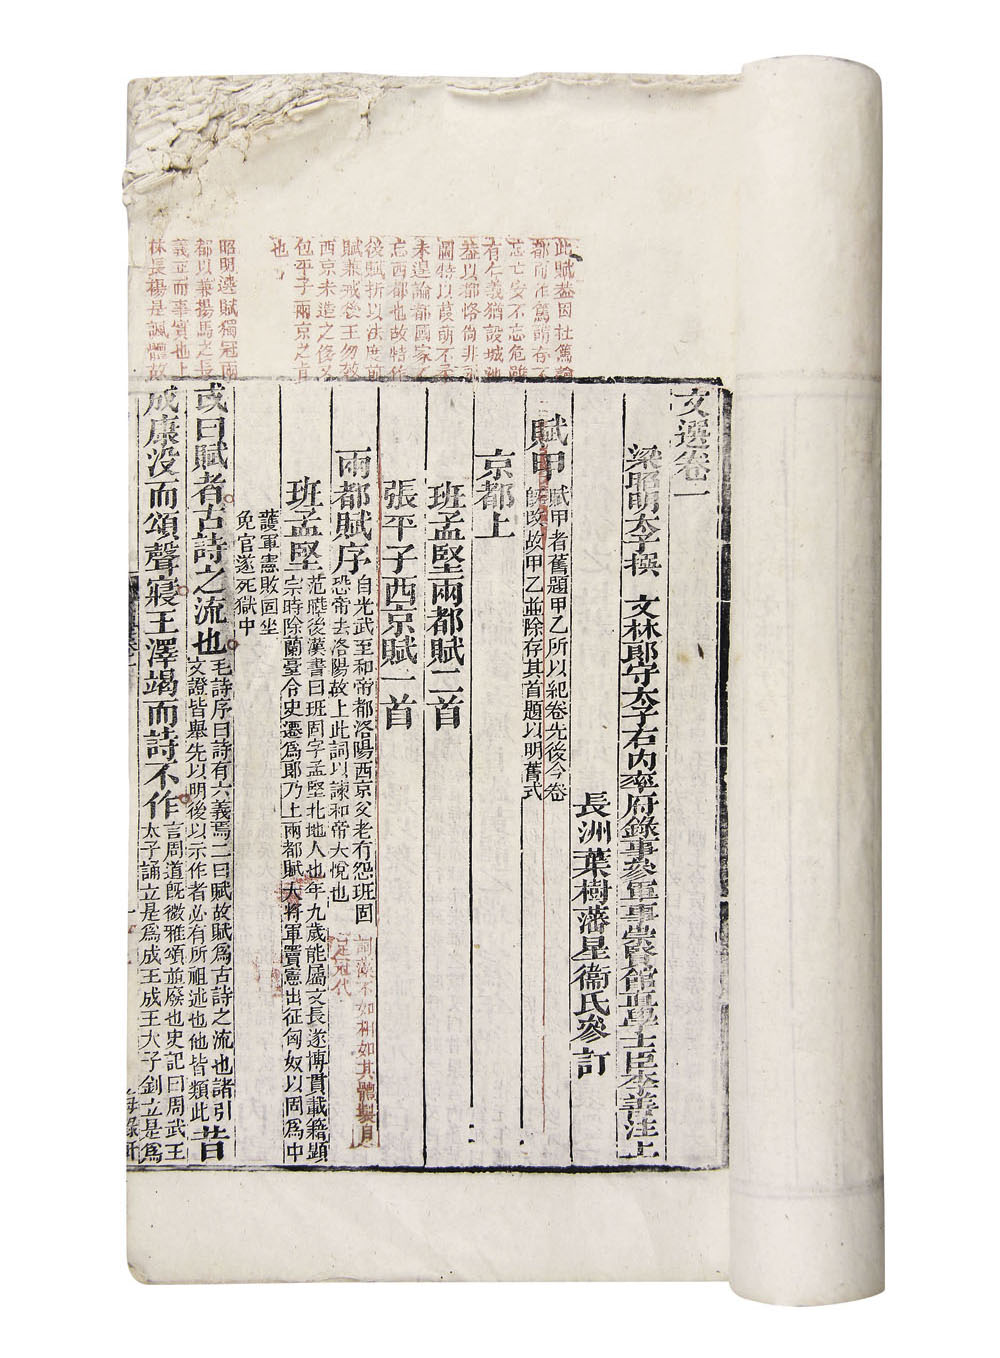 此賦蓋因杜篤論
都而作篤謂存不
忘亡安不忘危雖
有仁義猶設城池
蓋以都洛尚非
圖特以葭萌不柔
未遑論都國家不
忘西都也故特作
後賦折以法度前
賦兼戒後王勿效
西京末造之侈又
包平子兩京之旨
也
昭明選賦獨冠兩
都以兼揚馬之長
義正而事實也上
林長楊是諷體故
文選卷一
梁昭明太子撰 文林郎守太子右內率府錄事參軍事崇賢館直學士臣李善注上
長洲葉樹藩星衞氏參訂
賦甲 賦甲者舊題甲乙所以紀卷先後今卷
旣改故甲乙並除存其首題以明舊式
京都上
班孟堅兩都賦二首
張平子西京賦一首
兩都賦序 自光武至和帝都洛陽西京父老有怨班固
恐帝去洛陽故上此詞以諫和帝大悅也
詞藻不如相如其體製自
足冠代
班孟堅 范曄後漢書曰班固字孟堅北地人也年九歲能屬文長遂博貫載籍顯
宗時除蘭臺令史遷爲郎乃上兩都賦大將軍竇憲出征匈奴以固爲中
護軍憲敗固坐
免官遂死獄中
或曰賦者古詩之流也 毛詩序曰詩有六義焉二曰賦故賦爲古詩之流也諸引
文證皆舉先以明後以示作者必有所祖述也他皆類此 昔
成康没而頌聲寢王澤竭而詩不作 言周道旣微雅頌並廢也史記曰周武王
太子誦立是爲成王成王太子釗立是爲
海錄軒